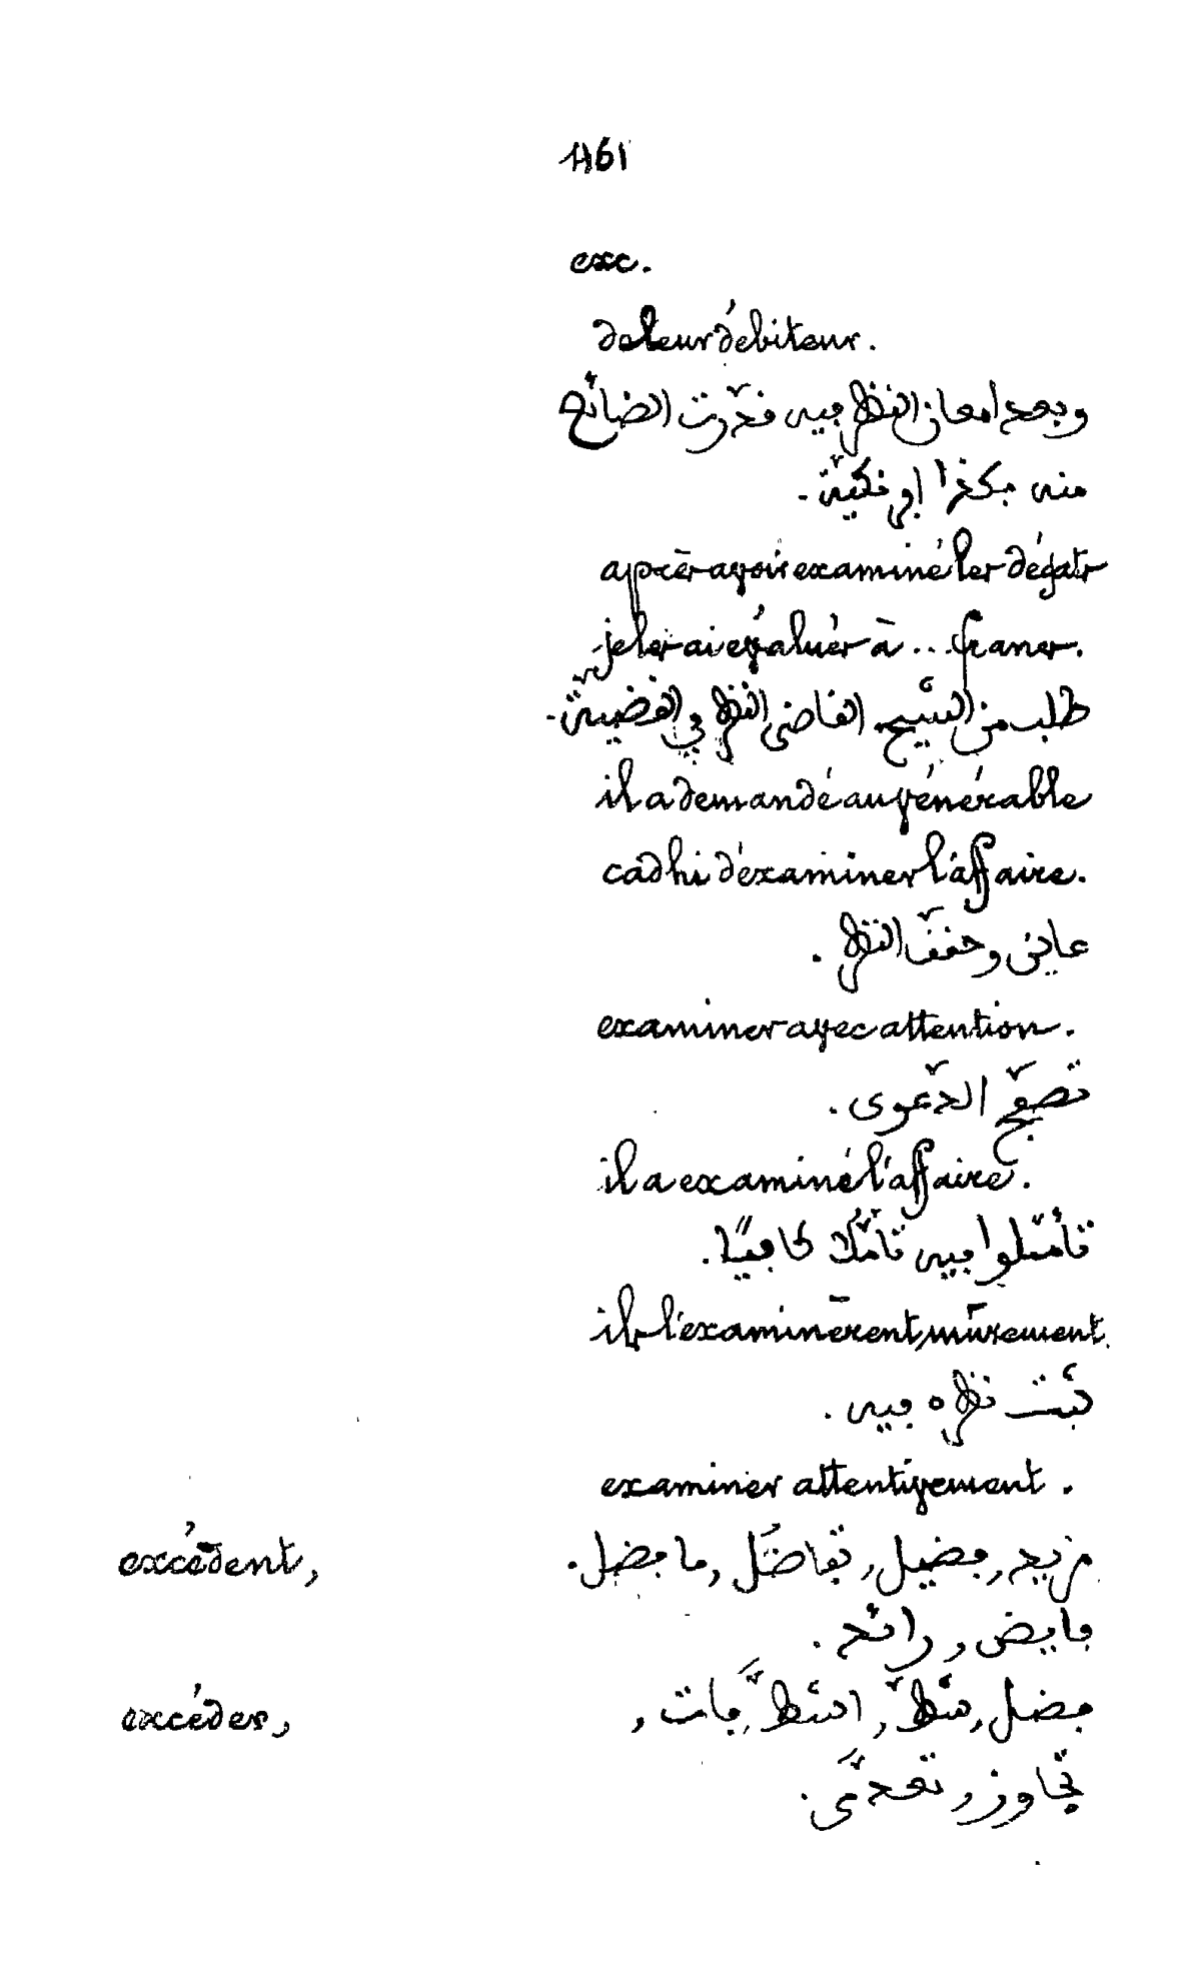 461
exc.
de leur débiteur.
وبعد امعان النظر فيه قدّرت الضائع
منه بكذا افرنكيّة.
après avoir examiné les dégats
je les ai évalués à ... francs.
طلب من الشيخ القاضي النظر في القضيّة.
il a demandé au vénérable
cadhi d'examiner l'affaire.
عاين وحقّق النظر.
examiner avec attention.
تصفّح الدّعوى.
il a examiné l'affaire.
تأمّلوا فيه تأمّلا كافيًا.
ils l'examinèrent mûrement.
ثبّت نظره فيه.
examiner attentivement.
excédent, مزيد, فضيل, تفاضُل, ما فضل.
فايض, زائد.
excéder, فضل, شطّ, اشتطّ, فات,
تجاوز, تعدّى.